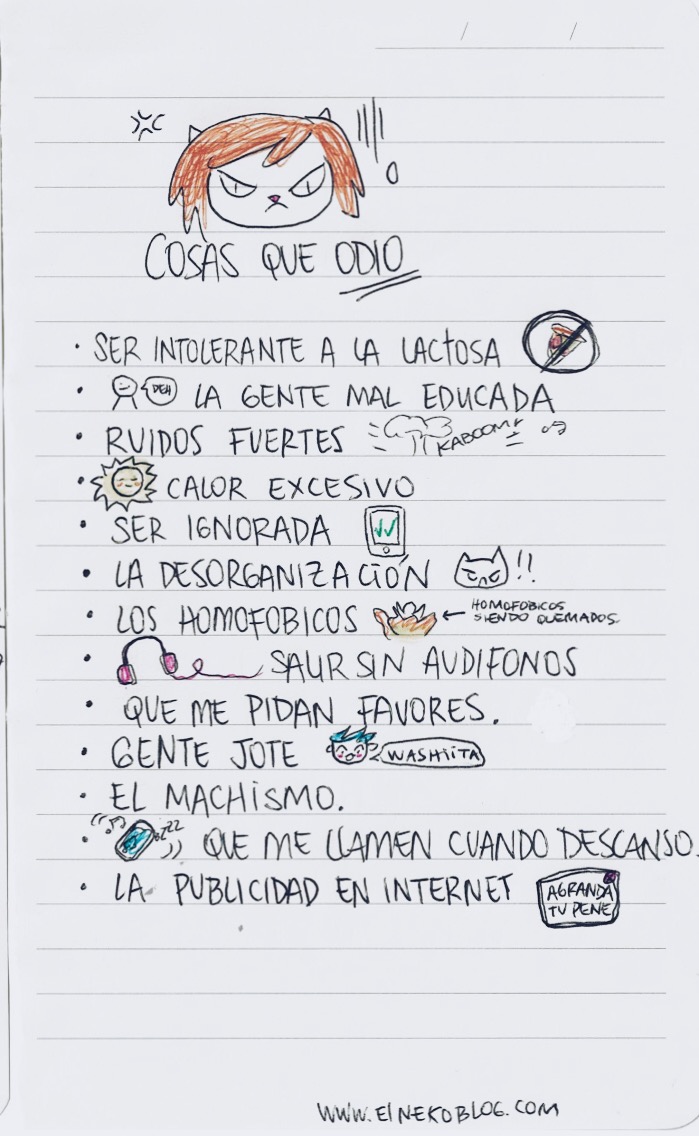 COSAS QUE ODIO
· SER INTOLERANTE A LA LACTOSA
· LA GENTE MAL EDUCADA
· RUIDOS FUERTES KABOOM
· CALOR EXCESIVO
· SER IGNORADA
· LA DESORGANIZACIÓN !!
· LOS HOMOFOBICOS ← HOMOFOBICOS
SIENDO QUEMADOS
· SALIR SIN AUDIFONOS
· QUE ME PIDAN FAVORES.
· GENTE JOTE WASHIITA
· EL MACHISMO.
· ZZZ QUE ME LLAMEN CUANDO DESCANSO.
· LA PUBLICIDAD EN INTERNET AGRANDA
TU PENE
WWW.ElNEKOBLOG.COM